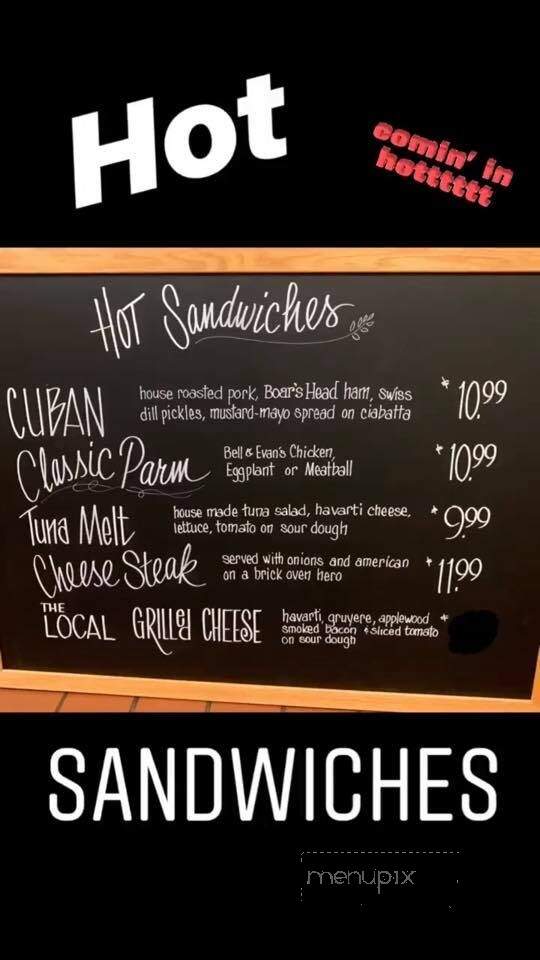 Hot
comin' in
hotttttt
Hot Sandwiches
CUBAN
house roasted pork, Boar's Head ham, swiss
dill pickles, mustard-mayo spread on ciabatta
10.99
Classic Parm
Bell & Evan's Chicken,
Eggplant or Meatball
10.99
Tuna Melt
house made tuna salad, havarti cheese,
lettuce, tomato on sour dough
9.99
Cheese Steak
served with onions and american
on a brick oven hero
11.99
THE
LOCAL GRILLEd CHEESE
havarti, gruyere, applewood
smoked bacon & sliced tomato
on sour dough
SANDWICHES
menupix